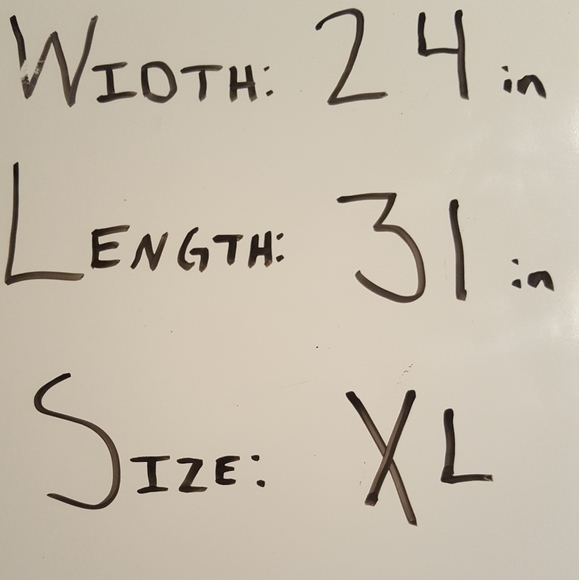 WIDTH: 24 in
LENGTH: 31 in
SIZE: XL